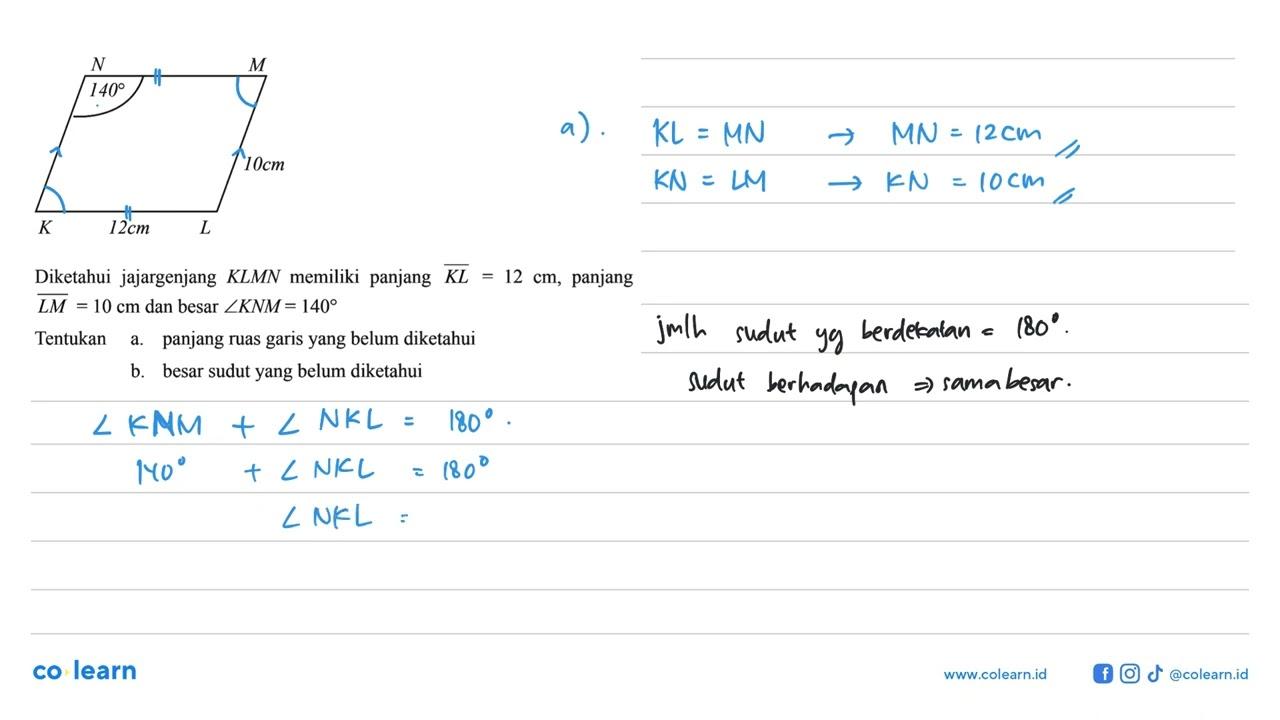 N M
140°
10cm
K 12cm L
a). KL = MN → MN = 12 cm
KN = LM → KN = 10 cm
Diketahui jajargenjang KLMN memiliki panjang KL = 12 cm, panjang
LM = 10 cm dan besar ∠KNM = 140°
Tentukan a. panjang ruas garis yang belum diketahui
b. besar sudut yang belum diketahui
jmlh sudut yg berdekatan = 180°.
sudut berhadapan ⇒ sama besar.
∠ KNM + ∠ NKL = 180°.
140° + ∠ NKL = 180°
∠ NKL =
co learn
www.colearn.id @colearn.id